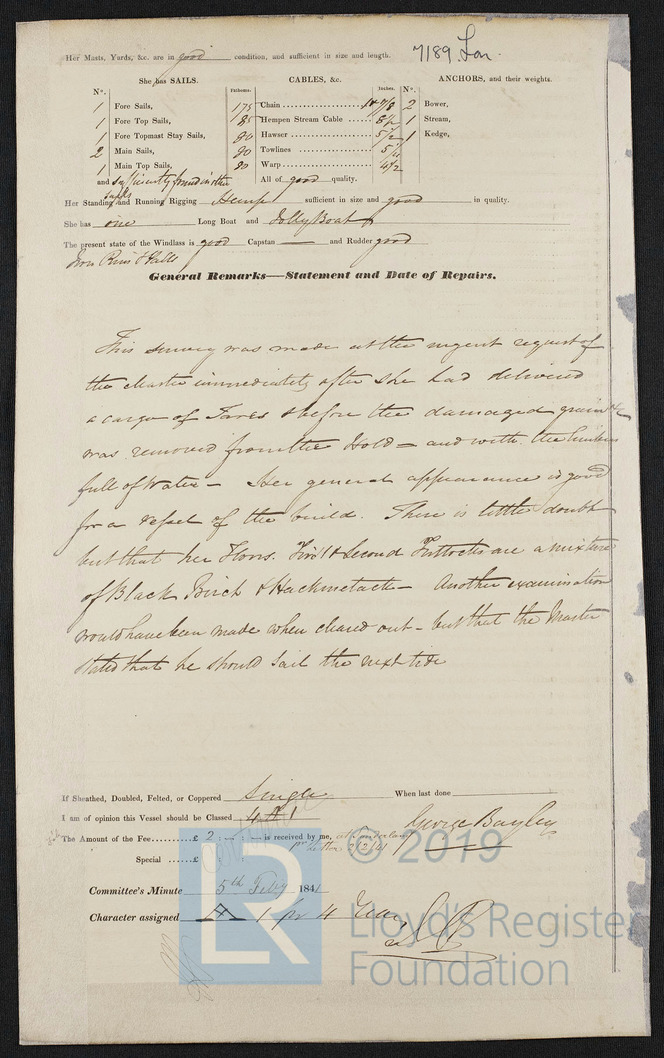 7189 Lon
Her Masts, Yards, &c. are in good condition, and sufficient in size and length.
She has SAILS. CABLES, &c. ANCHORS, and their weights.
No. Fathoms. Inches. No.
1 Fore Sails, 175 Chain 7/8 2 Bower,
1 Fore Top Sails, 85 Hempen Stream Cable 8½ 1 Stream,
1 Fore Topmast Stay Sails, 80 Hawser 5½ 1 Kedge,
2 Main Sails, 80 Towlines 5
1 Main Top Sails, 80 Warp 4½
and sufficiently found in other sails All of good quality.
Her Standing and Running Rigging Hemp sufficient in size and good in quality.
She has one Long Boat and Jolly Boat
The present state of the Windlass is good Capstan — and Rudder good
General Remarks—Statement and Date of Repairs.
This survey was made at the urgent request of
the immediately after she had delivered
a cargo of Tares & before the damaged grain &c
was removed from the Hold = and with the limbers
full of Water – Her general appearance is good
for a vessel of the build. There is little doubt
but that her Floors. First & Second Futtocks are a mixture
of Black Birch & Hackmetack – Another examination
would have been made when cleared out – but that the Master
stated that he should sail the next tide
If Sheathed, Doubled, Felted, or Coppered Single When last done
I am of opinion this Vessel should be Classed 4 A 1
The Amount of the Fee ...... £ 2 : - : - is received by me, George Bayley
Special ...... £ : :
Committee's Minute 5th Feby 1841
Character assigned A 1 for 4 Years
© 2019
LR
Lloyd's Register
Foundation